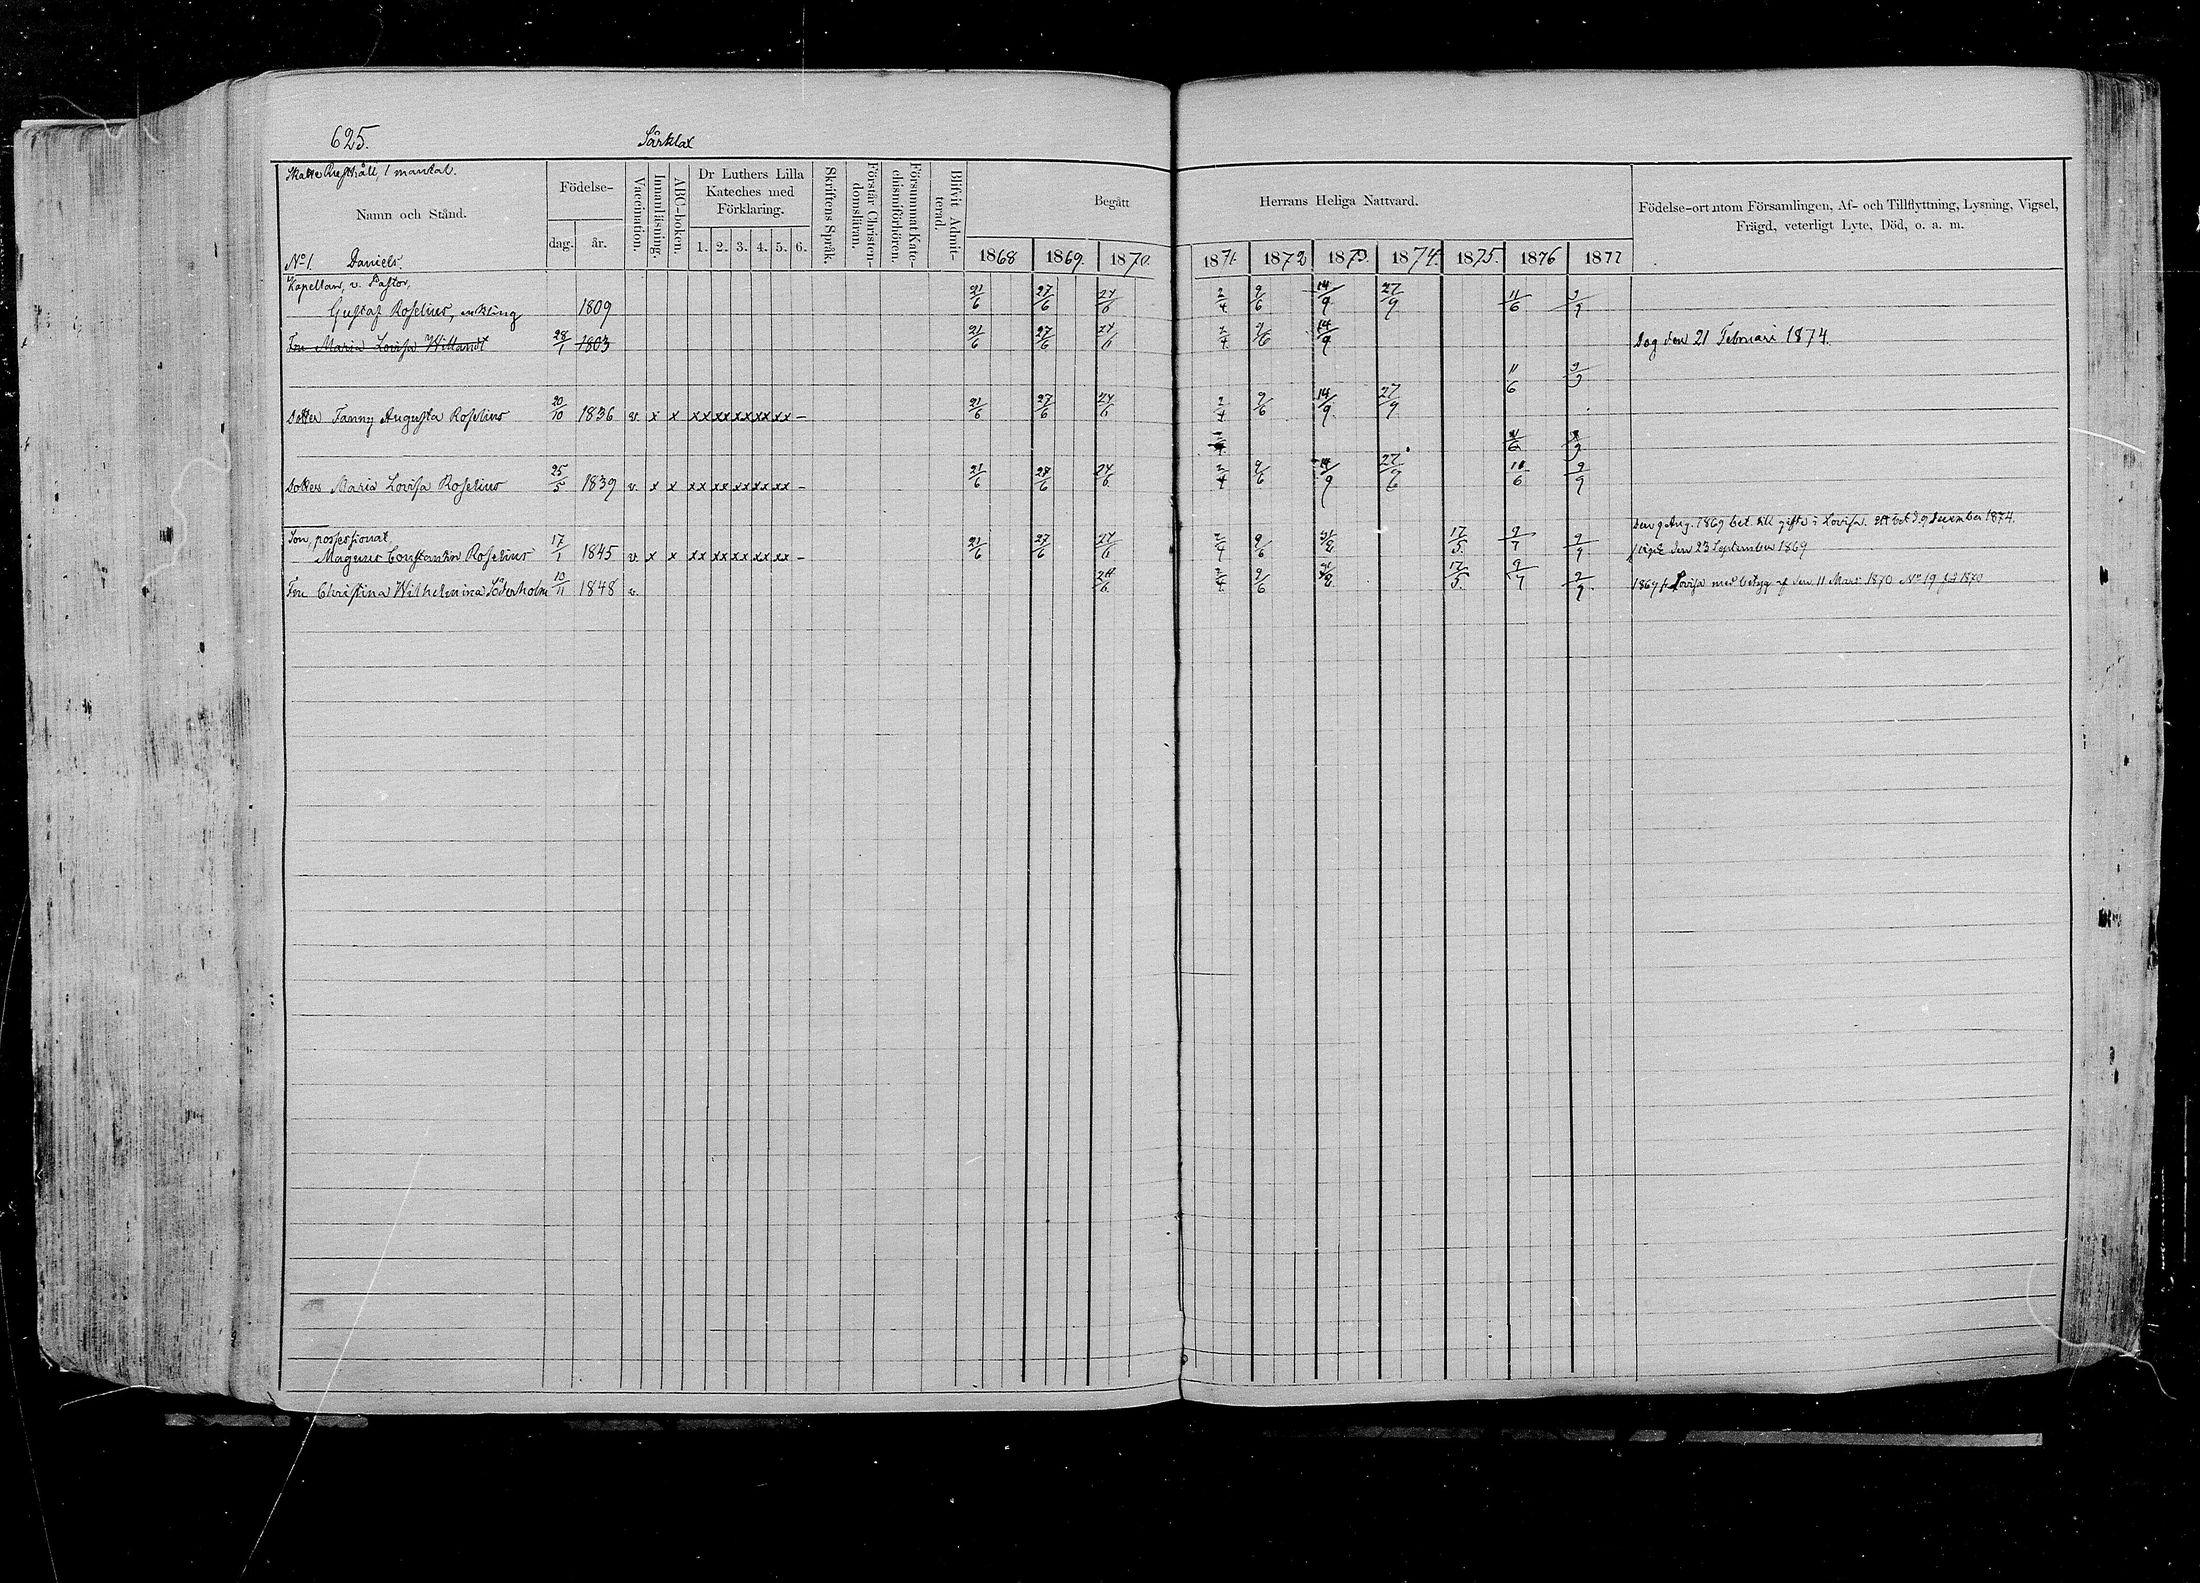 625. Särklax
Skatte Rusthåll, 1 mantal.
Namn och Stånd.
Födelse-
dag. år.
Vaccination.
Innanläsning.
ABC-boken.
Dr Luthers Lilla
Kateches med
Förklaring.
1. 2. 3. 4. 5. 6.
Skriftens Språk.
Förstår Christen-
domsläran.
Försummat Kate-
chismiförhören.
Blifvit Admit-
terad.
Begått Herrans Heliga Nattvard.
1868 1869 1870. 1871. 1872 1873. 1874. 1875. 1876 1877
Födelse-ort utom Församlingen, Af- och Tillflyttning, Lysning, Vigsel,
Frägd, veterligt Lyte, Död, o. a. m.
No 1. Daniels.
Kapellan, v. Pastor,
Gustaf Roselius, enkling 1809 21/6 27/6 24/6 2/4 9/6 14/9 27/9 11/6 9/9
Fru Maria Lovisa Willandt 28/1 1803 21/6 27/6 24/6 2/4 9/6 14/9 Dog den 21 Februari 1874.
11/6 9/9
Dotter Fanny Augusta Roselius 20/10 1836 v. x x xx xx xx xx xx – 21/6 27/6 24/6 2/4 9/6 14/9 27/9
11/6 9/9
Dotter Maria Lovisa Roselius 25/5 1839 v. x x xx xx xx xx xx – 21/6 27/6 24/6 2/4 9/6 14/9 11/6 9/9
Den 9 Aug. 1869 bet. till gifte i Lovisa. Att bet. d. 9 December 1874.
Son, possessionat,
Magnus Constantin Roselius 17/1 1845 v. x x xx xx xx xx xx – 21/6 27/6 24/6 2/4 9/6 17/5. 9/7 9/9 vigde den 23 September 1869
Fru Christina Wilhelmina Söderholm 1848 v. 24/6. 2/4 9/6 17/5. 9/7 9/9. Lovisa med betyg af den 11 Mars 1870 No 19 1870